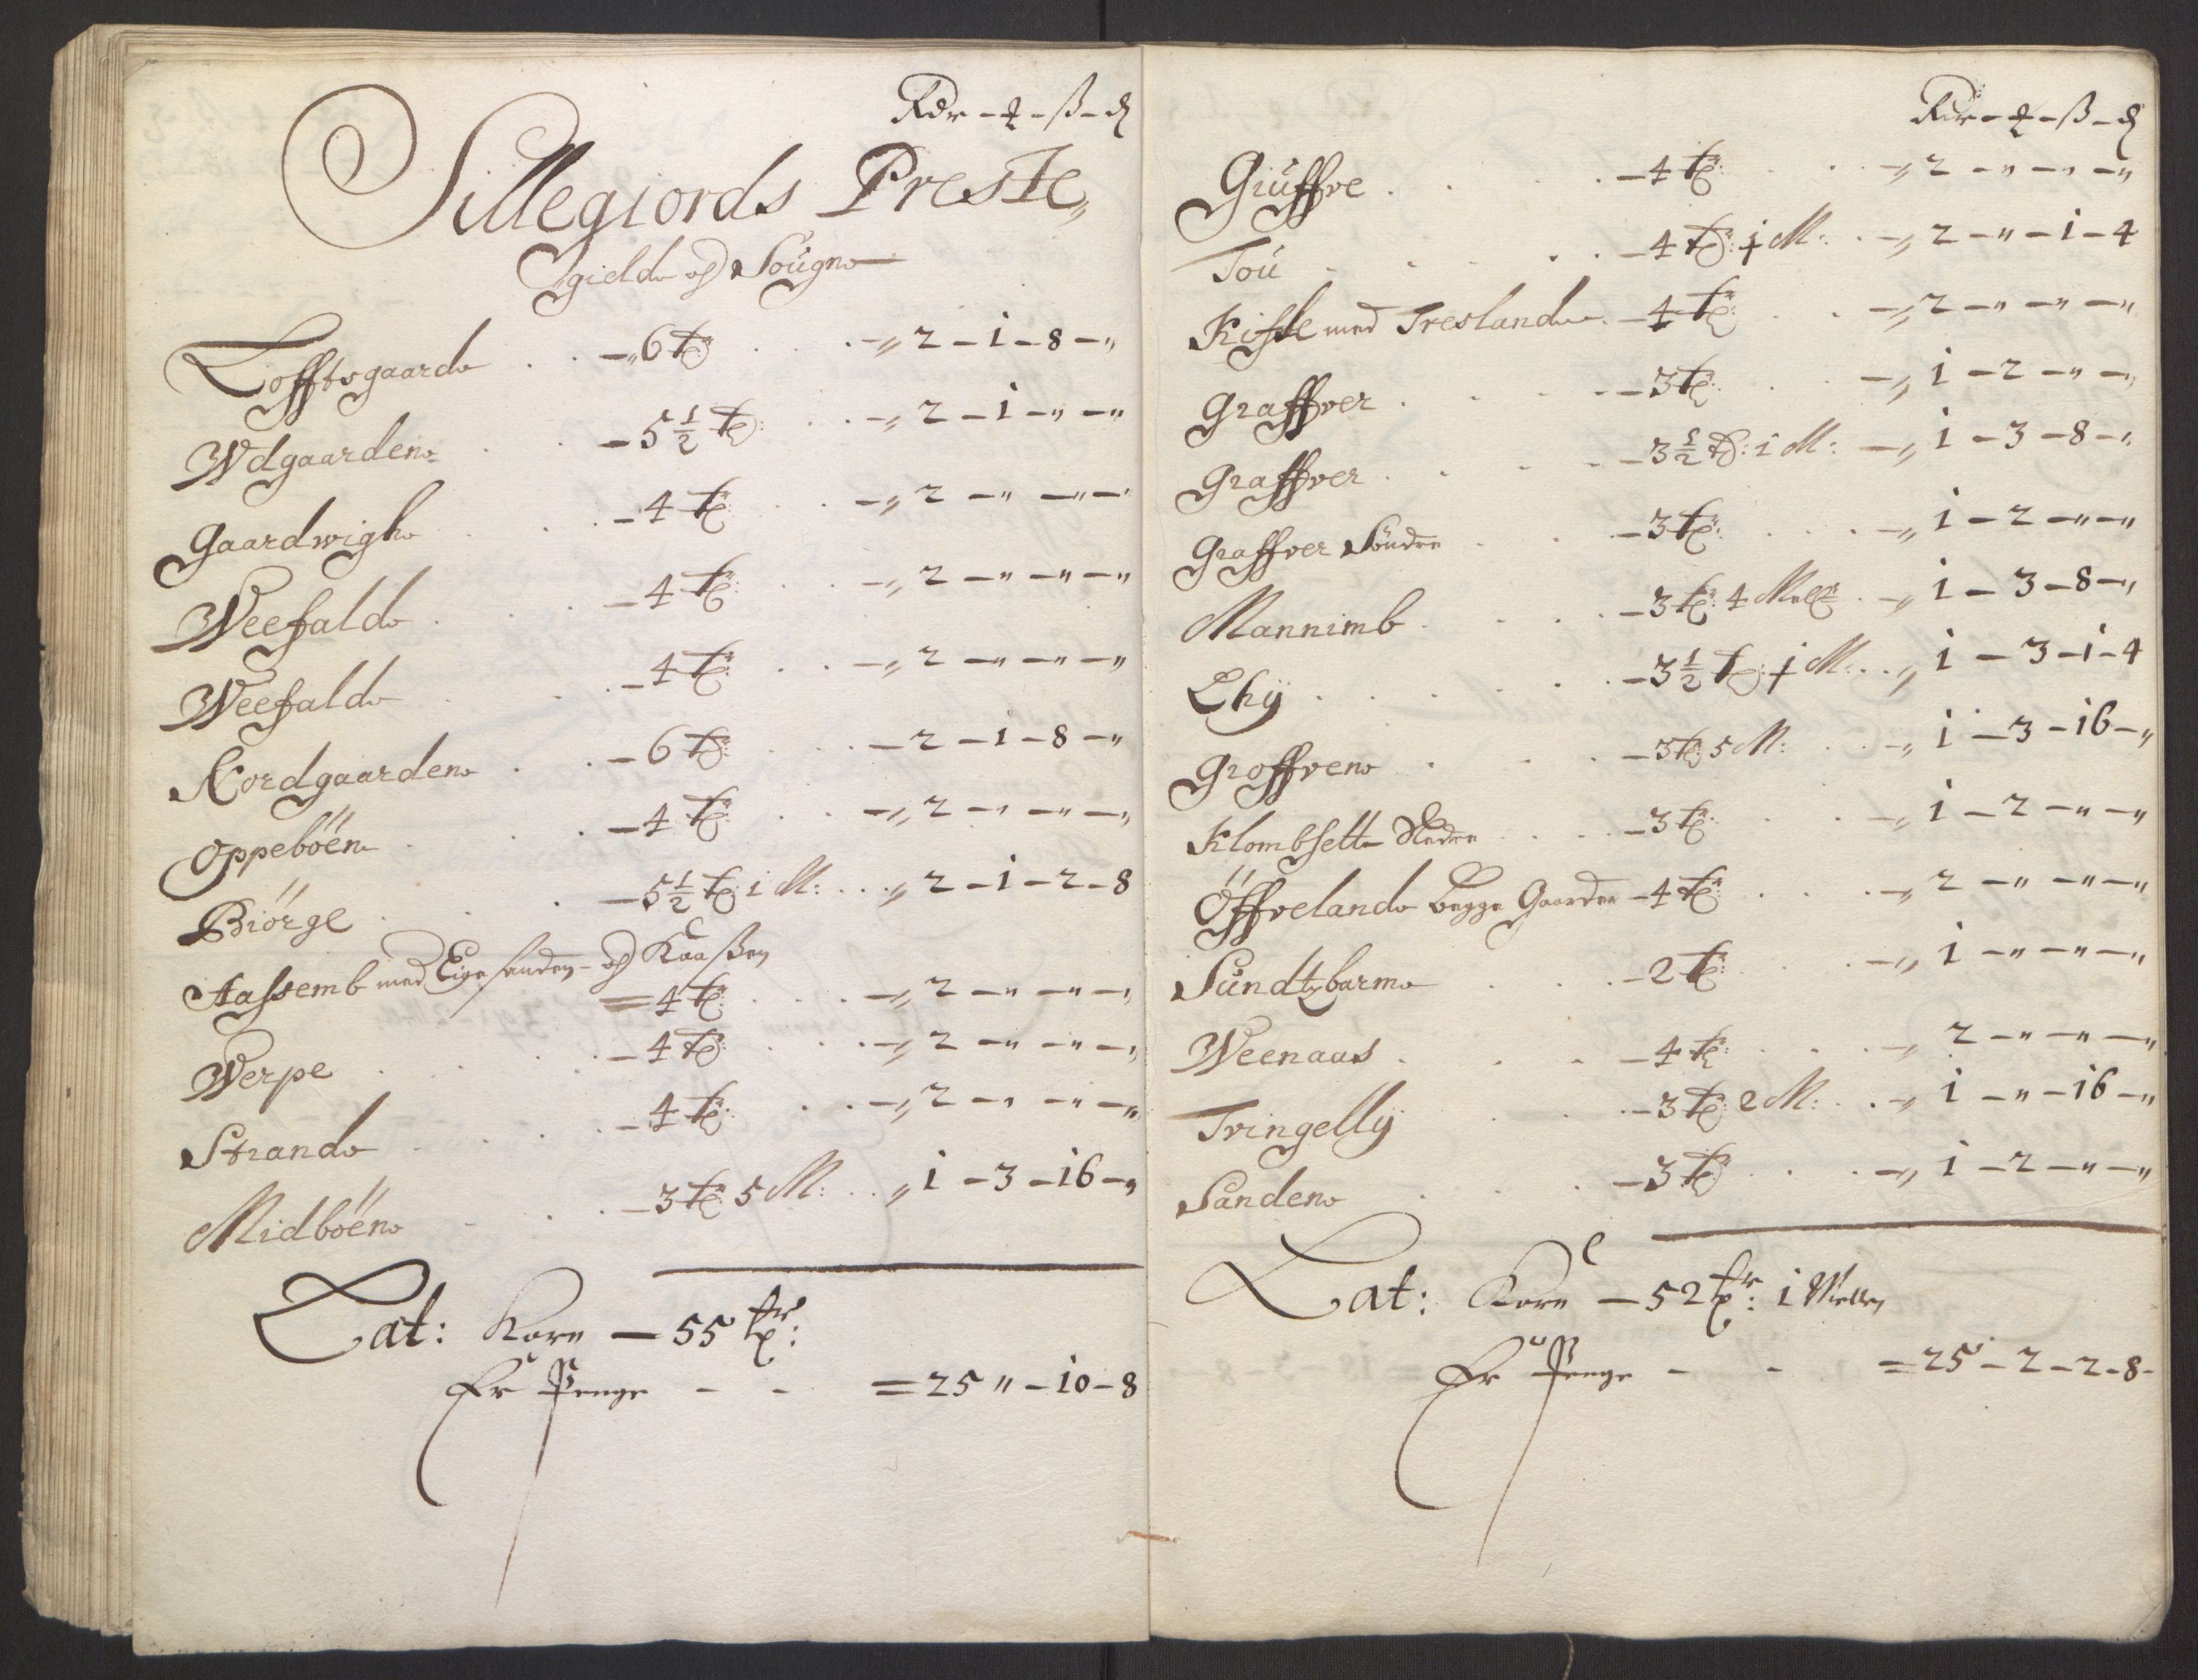 Rdr - ꝗ - ß - ₰
Sillegiords Preste
gield og Sougn
Lofftsgaard - 6 tr - " 2 - 1 - 8 - "
Wdgaarden - 5 1/2 tr: - " 2 - 1 - " - "
Gaardwigh - 4 tr: - " 2 - " - " - "
Weefald - 4 tr: - " 2 - " - " - "
Weefald - 4 tr: - " 2 - " - " - "
Nordgaarden - 6 tr: - 2 - 1 - 8 - "
Oppeböen - 4 tr: - " 2 - " - " - "
Biörge - 5 1/2 tr: 1 M: " 2 - 1 - 2 - 8
Aassemb med Eigesunden og Kaaßen
= 4 tr: - " 2 - " - " - "
Werpe - 4 tr: - " 2 - " - " - "
Strand - 4 tr: - " 2 - " - " - "
Midböen - 3 tr: 5 M: " 1 - 3 - 16 - "
Lat: Korn - 55 tr:
Er Penge - - = 25 " - 10 - 8
Rdr - ꝗ - ß - ₰
Giuffve - 4 tr: - " 2 - " - " - "
Tou - 4 tr: 1 M: - " 2 - " - 1 - 4
Kifle med Tresland - 4 tr: - " 2 - " - " - "
Graffver - 3 tr: - " 1 - 2 - " - "
Graffver - 3 1/2 tr: 1 M: - " 1 - 3 - 8 - "
Graffver Söndre - 3 tr: - " 1 - 2 - " - "
Mannimb - 3 tr: 4 Meler - " 1 - 3 - 8 - "
Lhÿ - 3 1/2 tr: 1 M: " 1 - 3 - 1 - 4
Groffven - 3 tr: 5 M: - " 1 - 3 - 16 - "
Klombsett Nedre - 3 tr: - " 1 - 2 - " - "
Öffveland begge Gaarder - 4 tr: - " 2 - " - " - "
Sundtbarm - 2 tr: - " 1 - " - " - "
Weenaas - 4 tr: - " 2 - " - " - "
Tvingellÿ - 3 tr: 2 M: - " 1 - " - 16 - "
Sanden - 3 tr: - " 1 - 2 - " - "
Lat: Korn - 52 tr: 1 Melle
Er Penge - - = 25 - 2 - 2 - 8 -